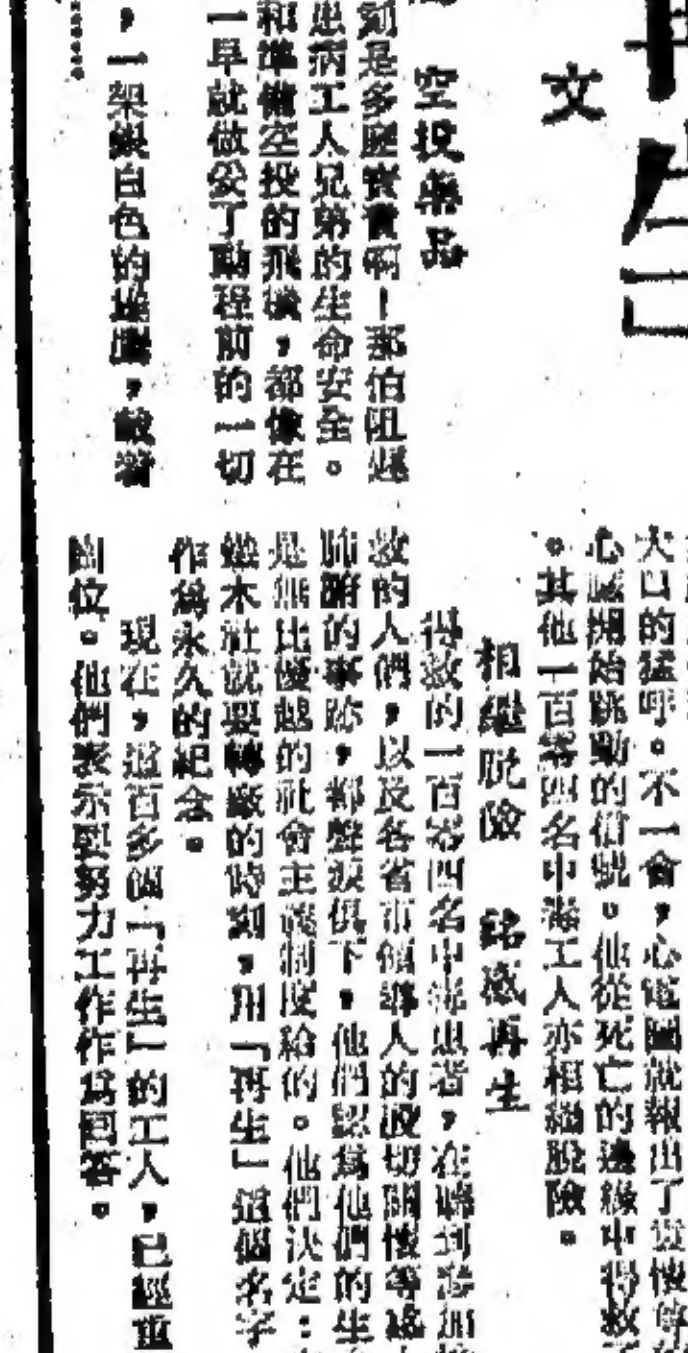 再生」
文
空投藥品
刻是多麼寶貴啊！那伯阻遲
患病工人兄弟的生命安全。
和準備空投的飛機，都像在
一早就做妥了動程前的一切
，一架銀白色的雄鷹，載着
大口的猛呼。不一會，心電圖就報出了
心臟開始跳動的信號。他從死亡的邊緣中得救了
。其他一百零四名中毒工人亦相繼脫險。
相繼脫險　銘感再生
得救的一百零四名中毒患者，在聽到參加
救的人們，以及各省市領導人的殷切關懷等
肺腑的事跡，都聲淚俱下，他們認為他們的生
是無比優越的社會主義制度給的。他們決定：
木社就要轉廠的時刻，用「再生」這個名字
作為永久的紀念。
現在，這百多個「再生」的工人，已經重
崗位。他們表示要努力工作作為回答。